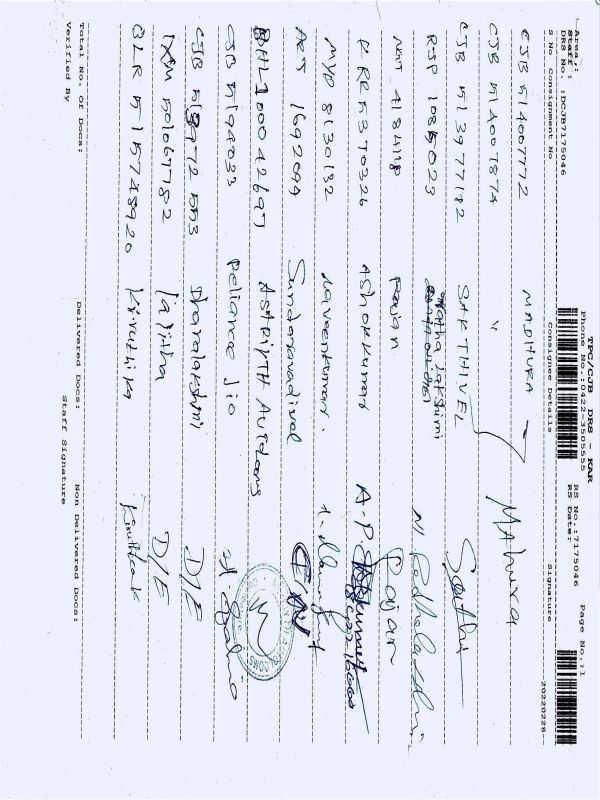 TPC/CJB DRS - KAR
Phone No.:0422-3505555
Area.:
Staff :
DRS No. :DCJB7175046
RS No.:7175046 Page No.:1
RS Date: 20220228
S No Consignment No Consignee Details Signature
CJB 514007772 MADHURA Mahura
CJB 514007874 "
CJB 513977182 SAKTHIVEL Sakthi
RSP 1085023 Radha Lakshmi
4184118 Rajan Rajan
KRR 5370326 Ashok Kumar
MYP 8130132 Naveenkumar.
1692094 Sundaravadivel
BHL100042697 ASTHIPTH AUTOCONS
CJB 5194033 Reliance Jio
CJB 518972553 Dharalakshmi D/E
IXM 501067782 Lajitha D/E
BLR 515748920 Kiruthika
Total No. Of Docs: Delivered Docs: Non Delivered Docs:
Verified By Staff Signature